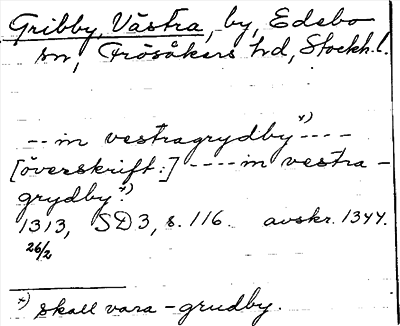 Gribby, Västra, by, Edebo
sn, Frösåkers hd, Stockh. l.
-- in vestragrydby x) ----
[överskrift:] ---- in vestra-
grydby. x)
1313, SD 3, s. 116. avskr. 1344.
26/2
x) skall vara - grudby.